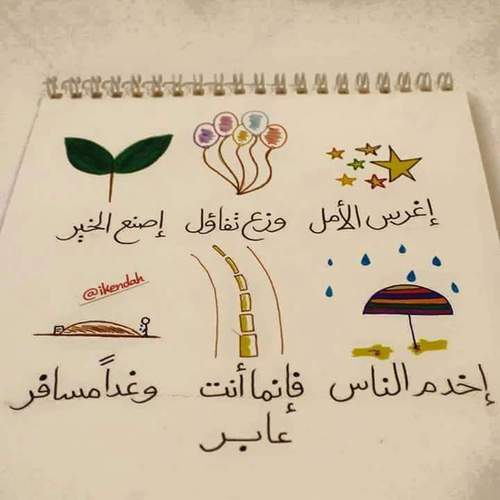 إغرس الأمل
وزع تفاؤل
إصنع الخير
@ikendah
إخدم الناس
فإنما أنت
عابر
وغداً مسافر